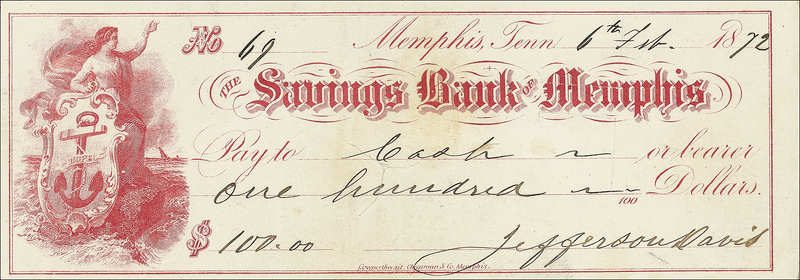 No 69 Memphis, Tenn 6th Feb. 1872
THE Savings Bank OF Memphis
Pay to Cash ~ or bearer
One hundred ~~ 100 Dollars.
$ 100.00 Jefferson Davis
HOPE
Cowperthwait, Chapman & Co. Memphis.